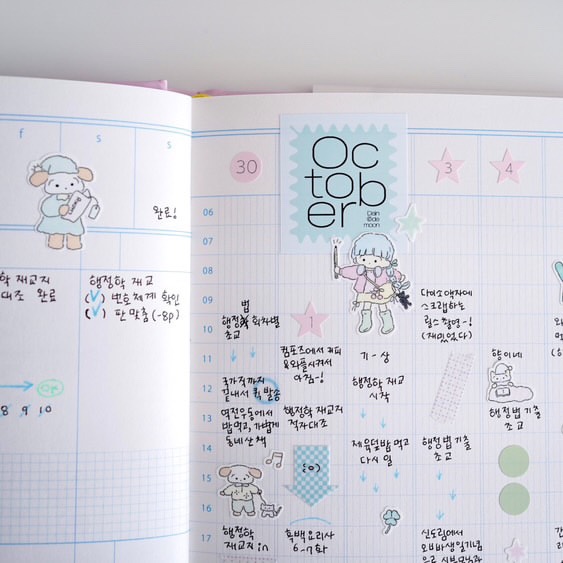 f
s
s
완료!
학 재교지
대조 완료
행정학 재교
(✓) 번호체계 확인
(✓) 판 맞춤 (-8p)
8 9 10
30
October
3
4
06
07
08
09
10
11
12
13
14
15
16
17
법
행정학 회차별
초교
국가직까지
끝내서 퀵 발송
역전우동에서
밥 먹고, 가볍게
동네 산책
행정학
재교지 in
1
컴포즈에서 커피
&와플시켜서
아침~!
행정학 재교지
적자대조
(이)
흑백요리사
6-7화
기-상
행정학 재교
시작
제육덮밥 먹고
다시 일
다이소 액자에
스크랩하는
릴스 촬영-!
(재밌었다)
행정법 기출
초교
신도림에서
오빠 생일기념
향이네
행정법 기출
초교